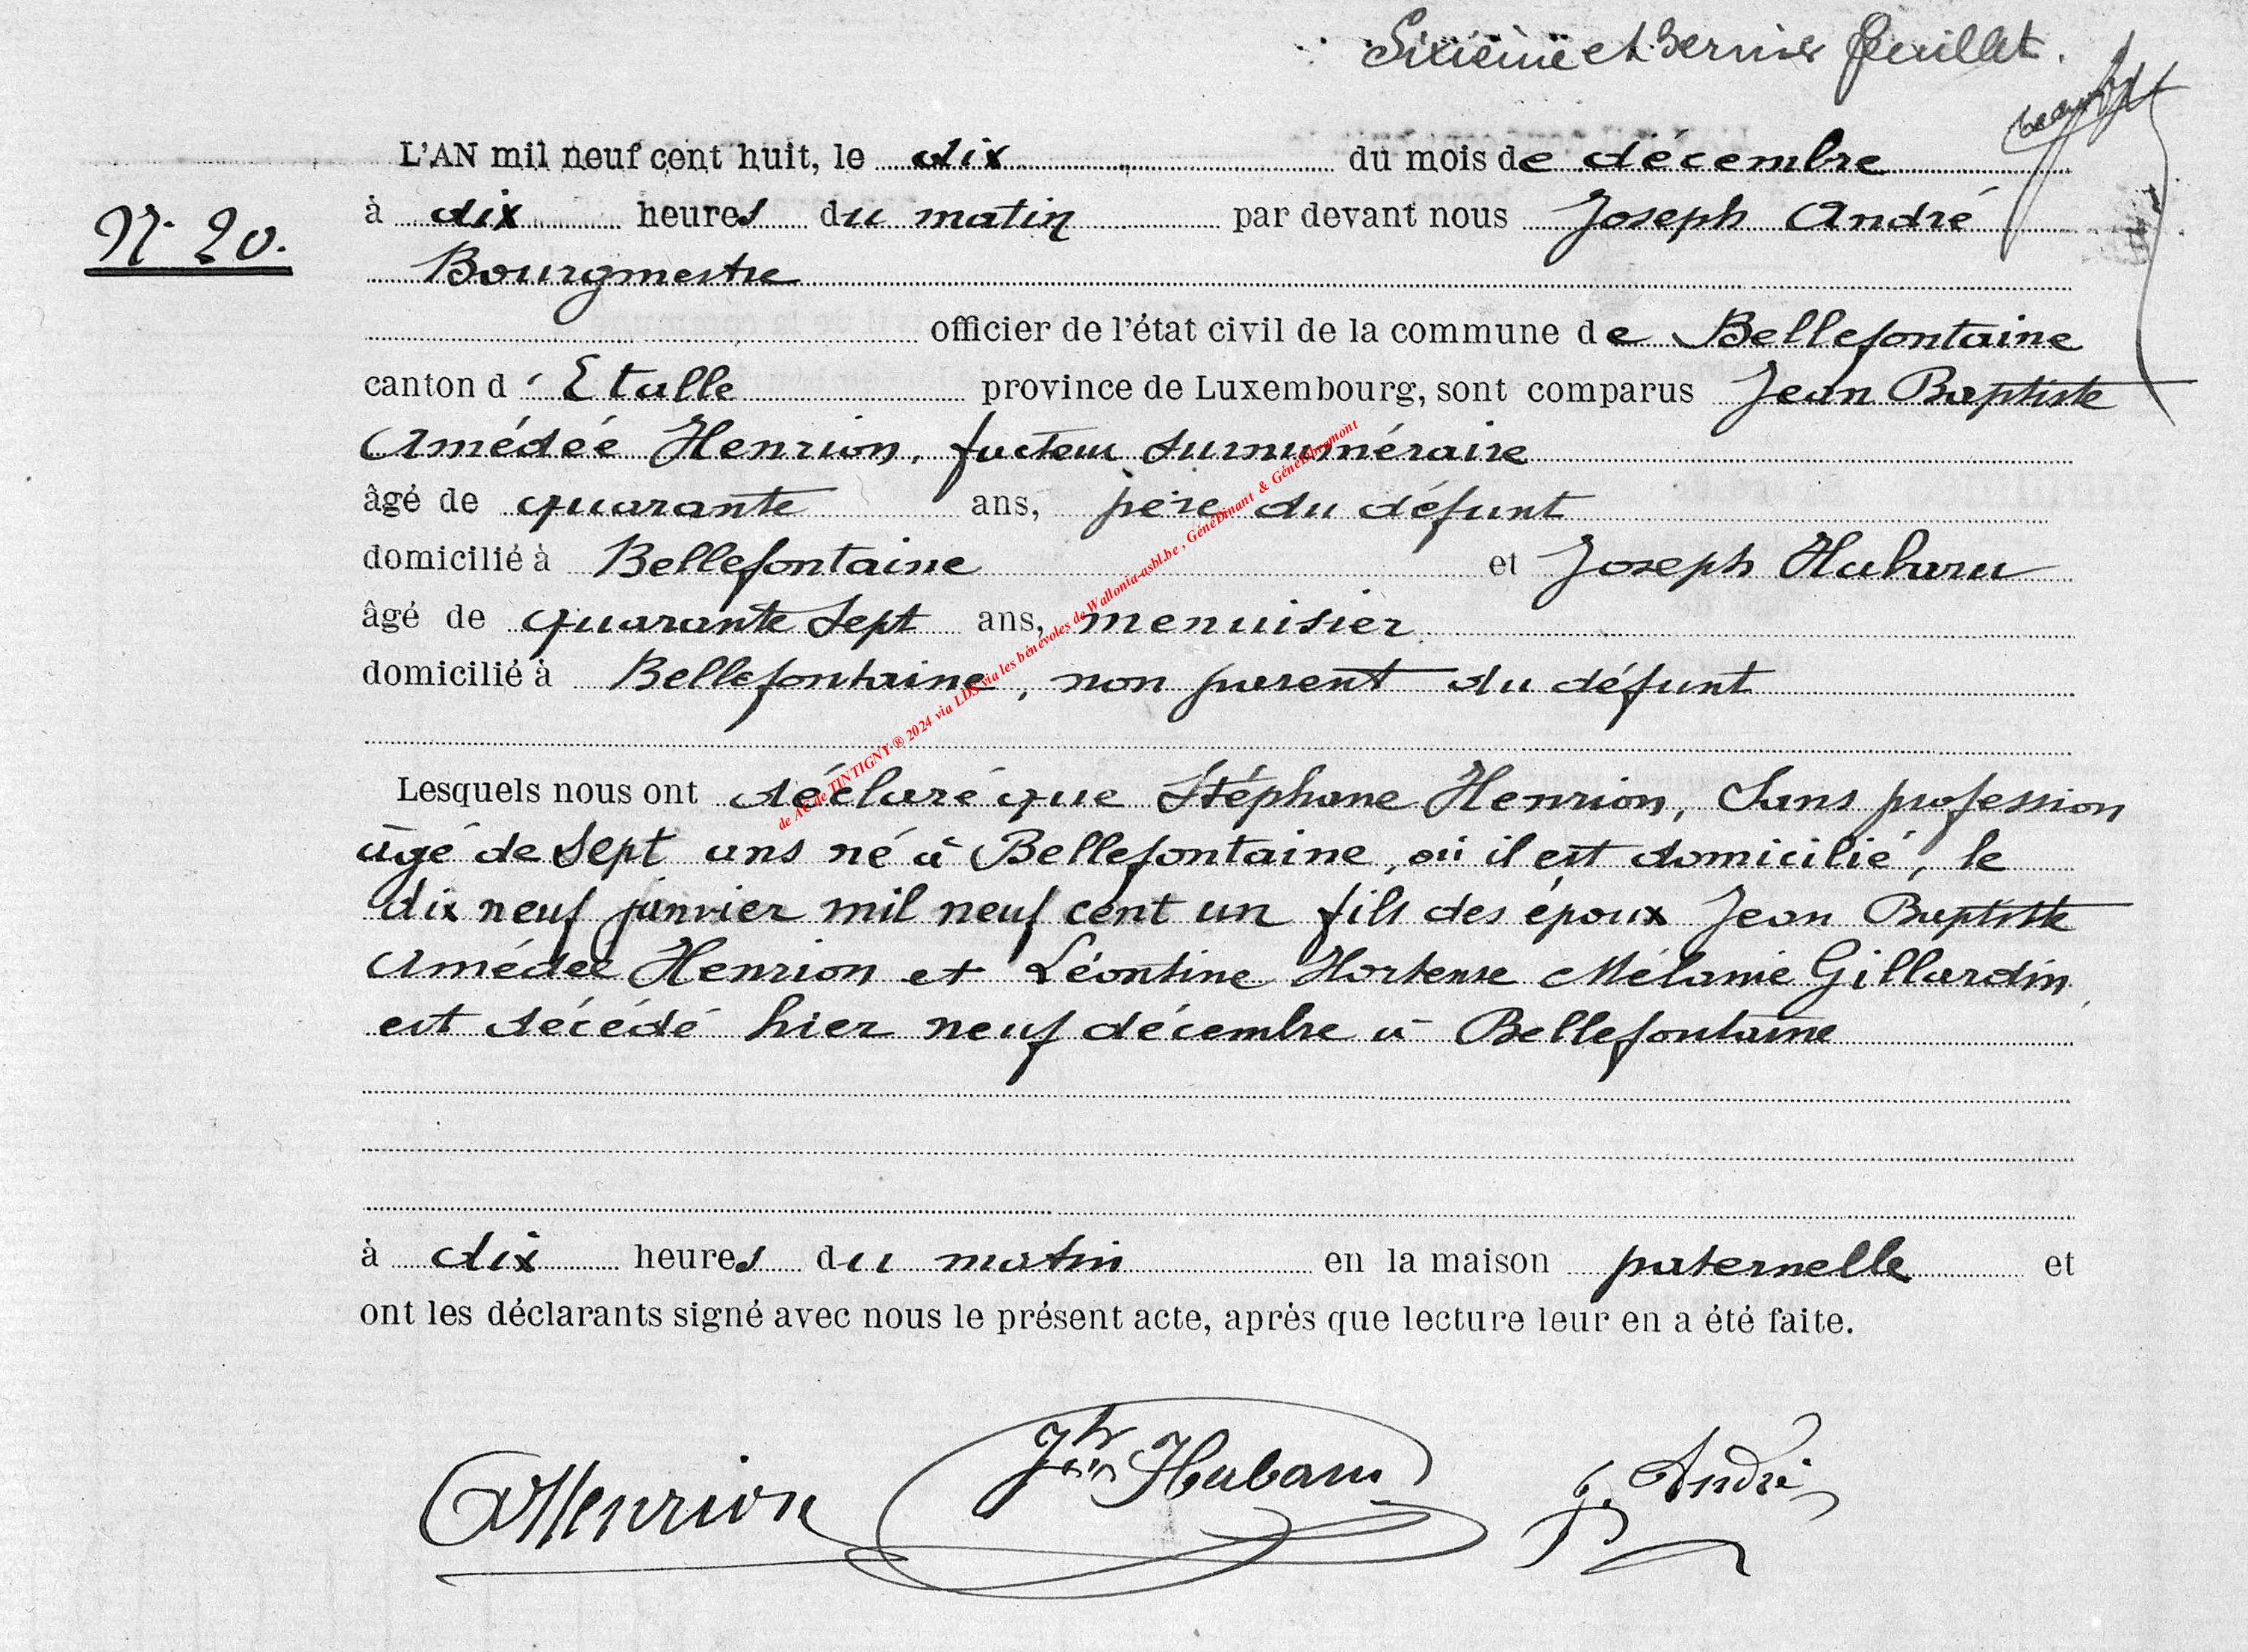 Sixième et dernier feuillet.
L'AN mil neuf cent huit, le dix du mois de décembre
N° 20.
à dix heures du matin par devant nous Joseph André
Bourgmestre
officier de l'état civil de la commune de Bellefontaine
canton d'Etalle province de Luxembourg, sont comparus Jean Baptiste
Amédée Henrion, facteur surnuméraire
âgé de quarante ans, père du défunt
domicilié à Bellefontaine et Joseph Hubaru
âgé de quarante sept ans, menuisier
domicilié à Bellefontaine, non parent du défunt
Lesquels nous ont déclaré que Stéphane Henrion, Sans profession
âgé de sept ans né à Bellefontaine, où il est domicilié, le
dix neuf janvier mil neuf cent un fils des époux Jean Baptiste
Amédée Henrion et Léontine Hortense Mélanie Gillardin
est décédé hier neuf décembre à Bellefontaine
à dix heures du matin en la maison paternelle et
ont les déclarants signé avec nous le présent acte, après que lecture leur en a été faite.
AHenrion Jh Hubaru J. André
de AC de TINTIGNY ® 2024 via LDS via les bénévoles de Wallonia-asbl.be , GénéDinant & GénéLibramont